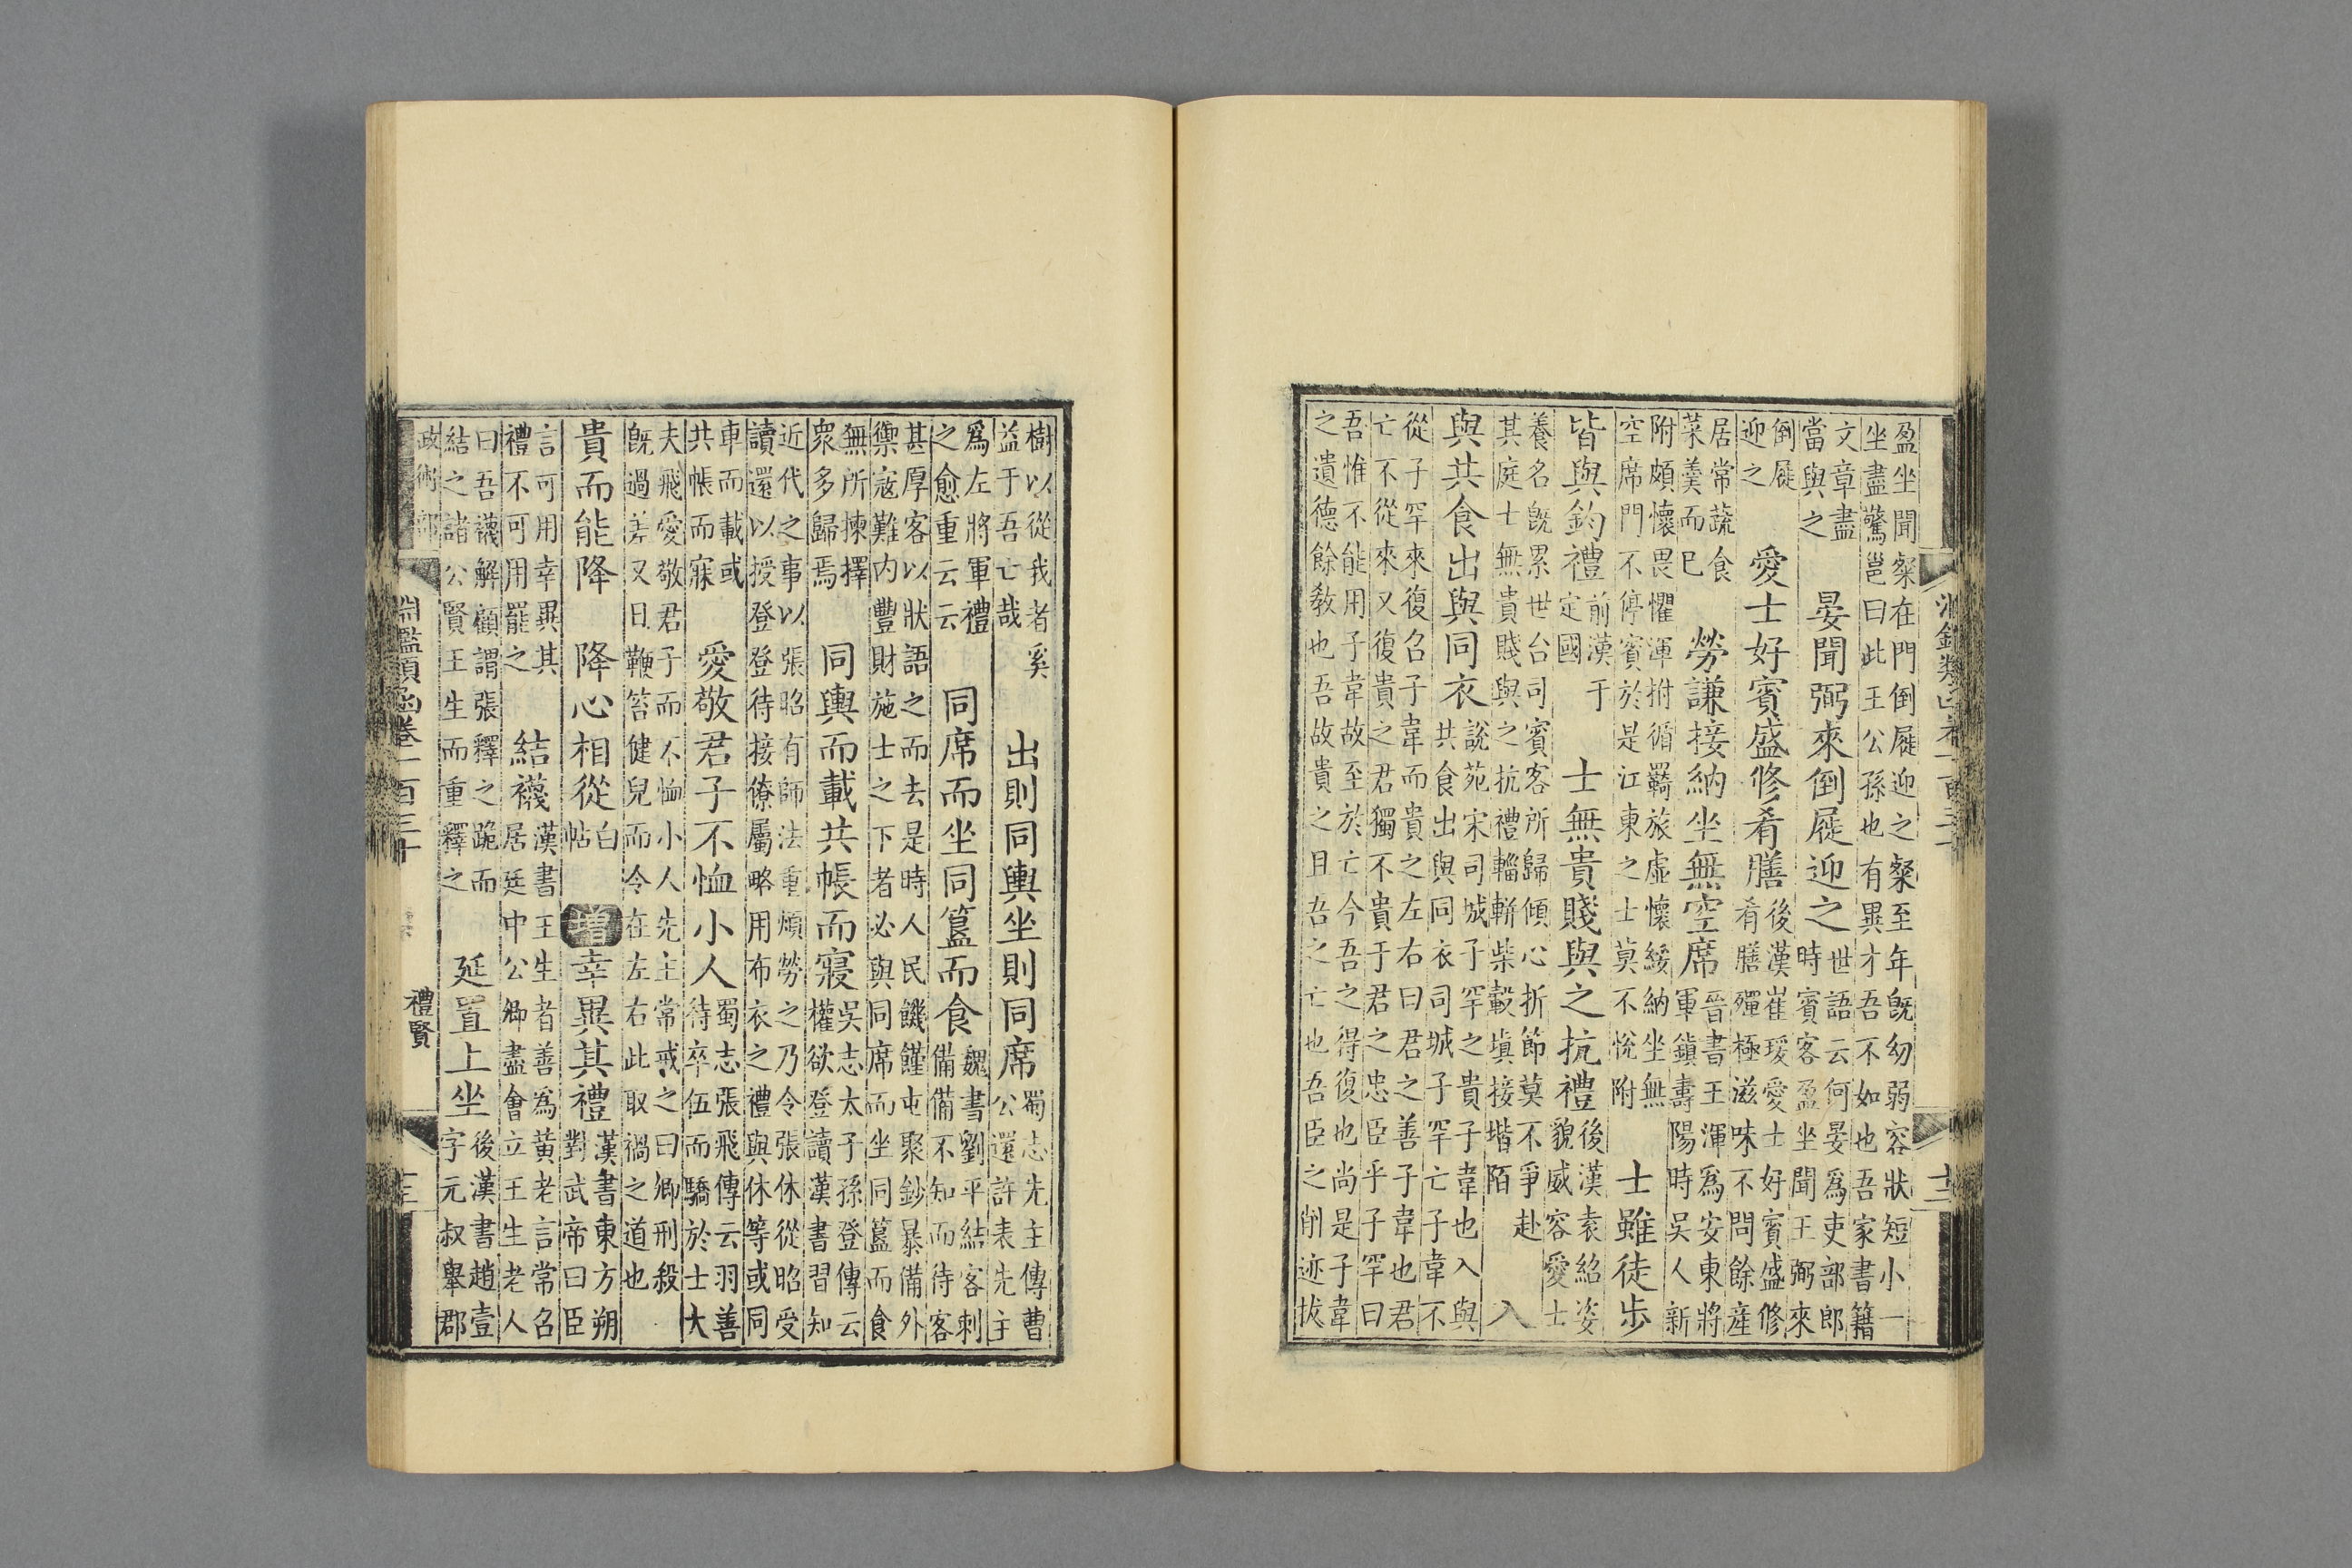 盈坐聞粲在門倒屣迎之粲至年既幼弱容狀短小一
坐盡驚邕曰此王公孫也有異才吾不如也吾家書籍
文章盡
當與之
晏聞弼來倒屣迎之
世語云何晏爲吏部郎
時賓客盈坐聞王弼來
倒屣
迎之
愛士好賓盛修肴膳
後漢崔瑗愛士好賓盛修
肴膳殫極滋味不問餘產
居常蔬食
菜羹而巳
勞謙接納坐無空席
晉書王渾爲安東將
軍鎮壽陽時吳人新
附頗懷畏懼渾拊循羇旅虛懷綏納坐無
空席門不停賓於是江東之士莫不悅附
士雖徒步
皆與鈞禮
前漢于
定國
士無貴賤與之抗禮
後漢袁紹姿
貌威容愛士
養名既累世台司賓客所歸傾心折節莫不爭赴
其庭士無貴賤與之抗禮輜軿柴轂塡接堦陌
入
與共食出與同衣
說苑宋司城子罕之貴子韋也入與
共食出與同衣司城子罕亡子韋不
從子罕來復召子韋而貴之左右曰君之善子韋也君
亡不從來又復貴之君獨不貴于君之忠臣乎子罕曰
吾惟不能用子韋故至於亡今吾之得復也尚是子韋
之遺德餘敎也吾故貴之且吾之亡也吾臣之削迹拔
十三
樹以從我者奚
益于吾亡哉
出則同輿坐則同席
蜀志先主傳曹
公還許表先主
爲左將軍禮
之愈重云云
同席而坐同簋而食
魏書劉平結客刺
備備不知而待客
甚厚客以狀語之而去是時人民饑饉屯聚鈔暴備外
禦寇難内豐財施士之下者必與同席而坐同簋而食
無所揀擇
衆多歸焉
同輿而載共帳而寢
吳志太子孫登傳云
權欲登讀漢書習知
近代之事以張昭有師法重煩勞之乃令張休從昭受
讀還以授登登待接僚屬略用布衣之禮與休等或同
車而載或
共帳而寐
愛敬君子不恤小人
蜀志張飛傳云羽善
待卒伍而驕於士大
夫飛愛敬君子而不恤小人先主常戒之曰卿刑殺
既過差又日鞭笞健兒而令在左右此取禍之道也
貴而能降
降心相從
白
帖
增
幸異其禮
漢書東方朔
對武帝曰臣
言可用幸異其
禮不可用罷之
結襪
漢書王生者善爲黃老言常召
居廷中公卿盡會立王生老人
曰吾襪解顧謂張釋之跪而
結之諸公賢王生而重釋之
延置上坐
後漢書趙壹
字元叔舉郡
政術部
淵鑑類函卷一百三十
禮賢